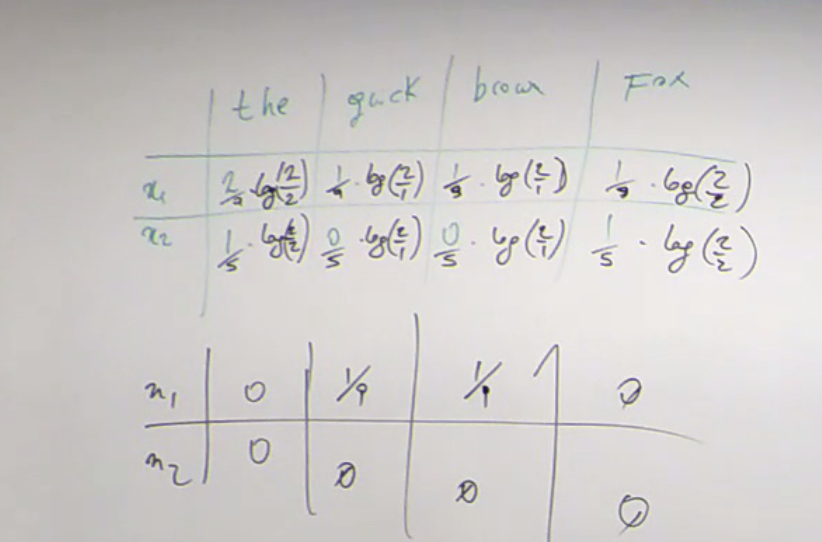 the quick brown Fox
x₁ 2/9 · log(2/2) 1/9 · log(2/1) 1/9 · log(2/1) 1/9 · log(2/2)
x₂ 1/5 · log(2/2) 0/5 · log(2/1) 0/5 · log(2/1) 1/5 · log(2/2)
x₁ 0 1/9 1/9 0
x₂ 0 0 0 0